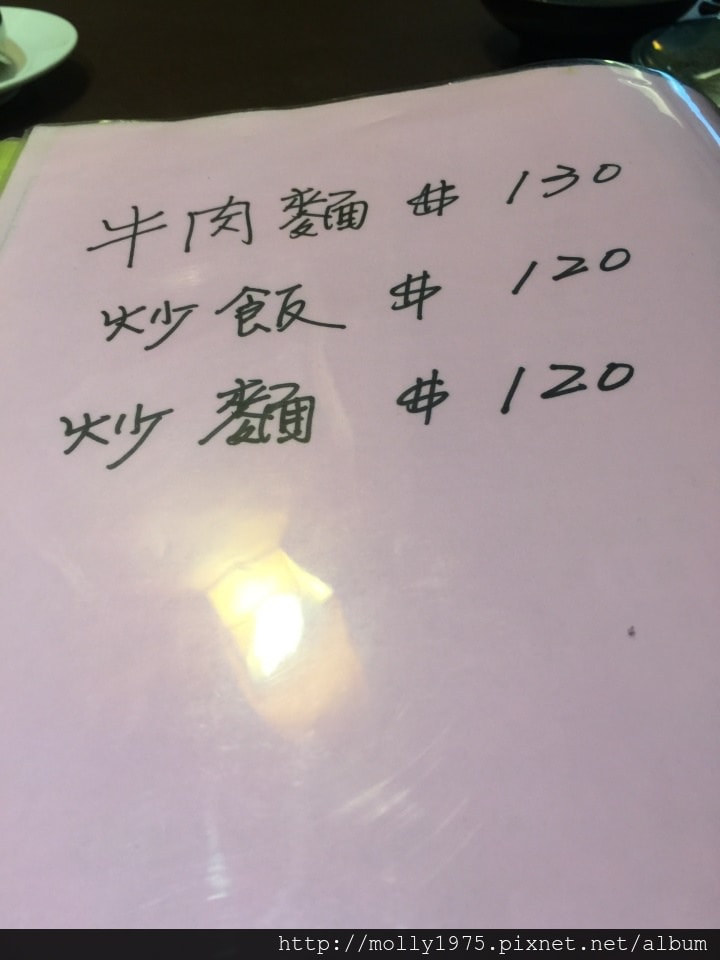 牛肉麵 $ 130
炒飯 $ 120
炒麵 $ 120
http://molly1975.pixnet.net/album